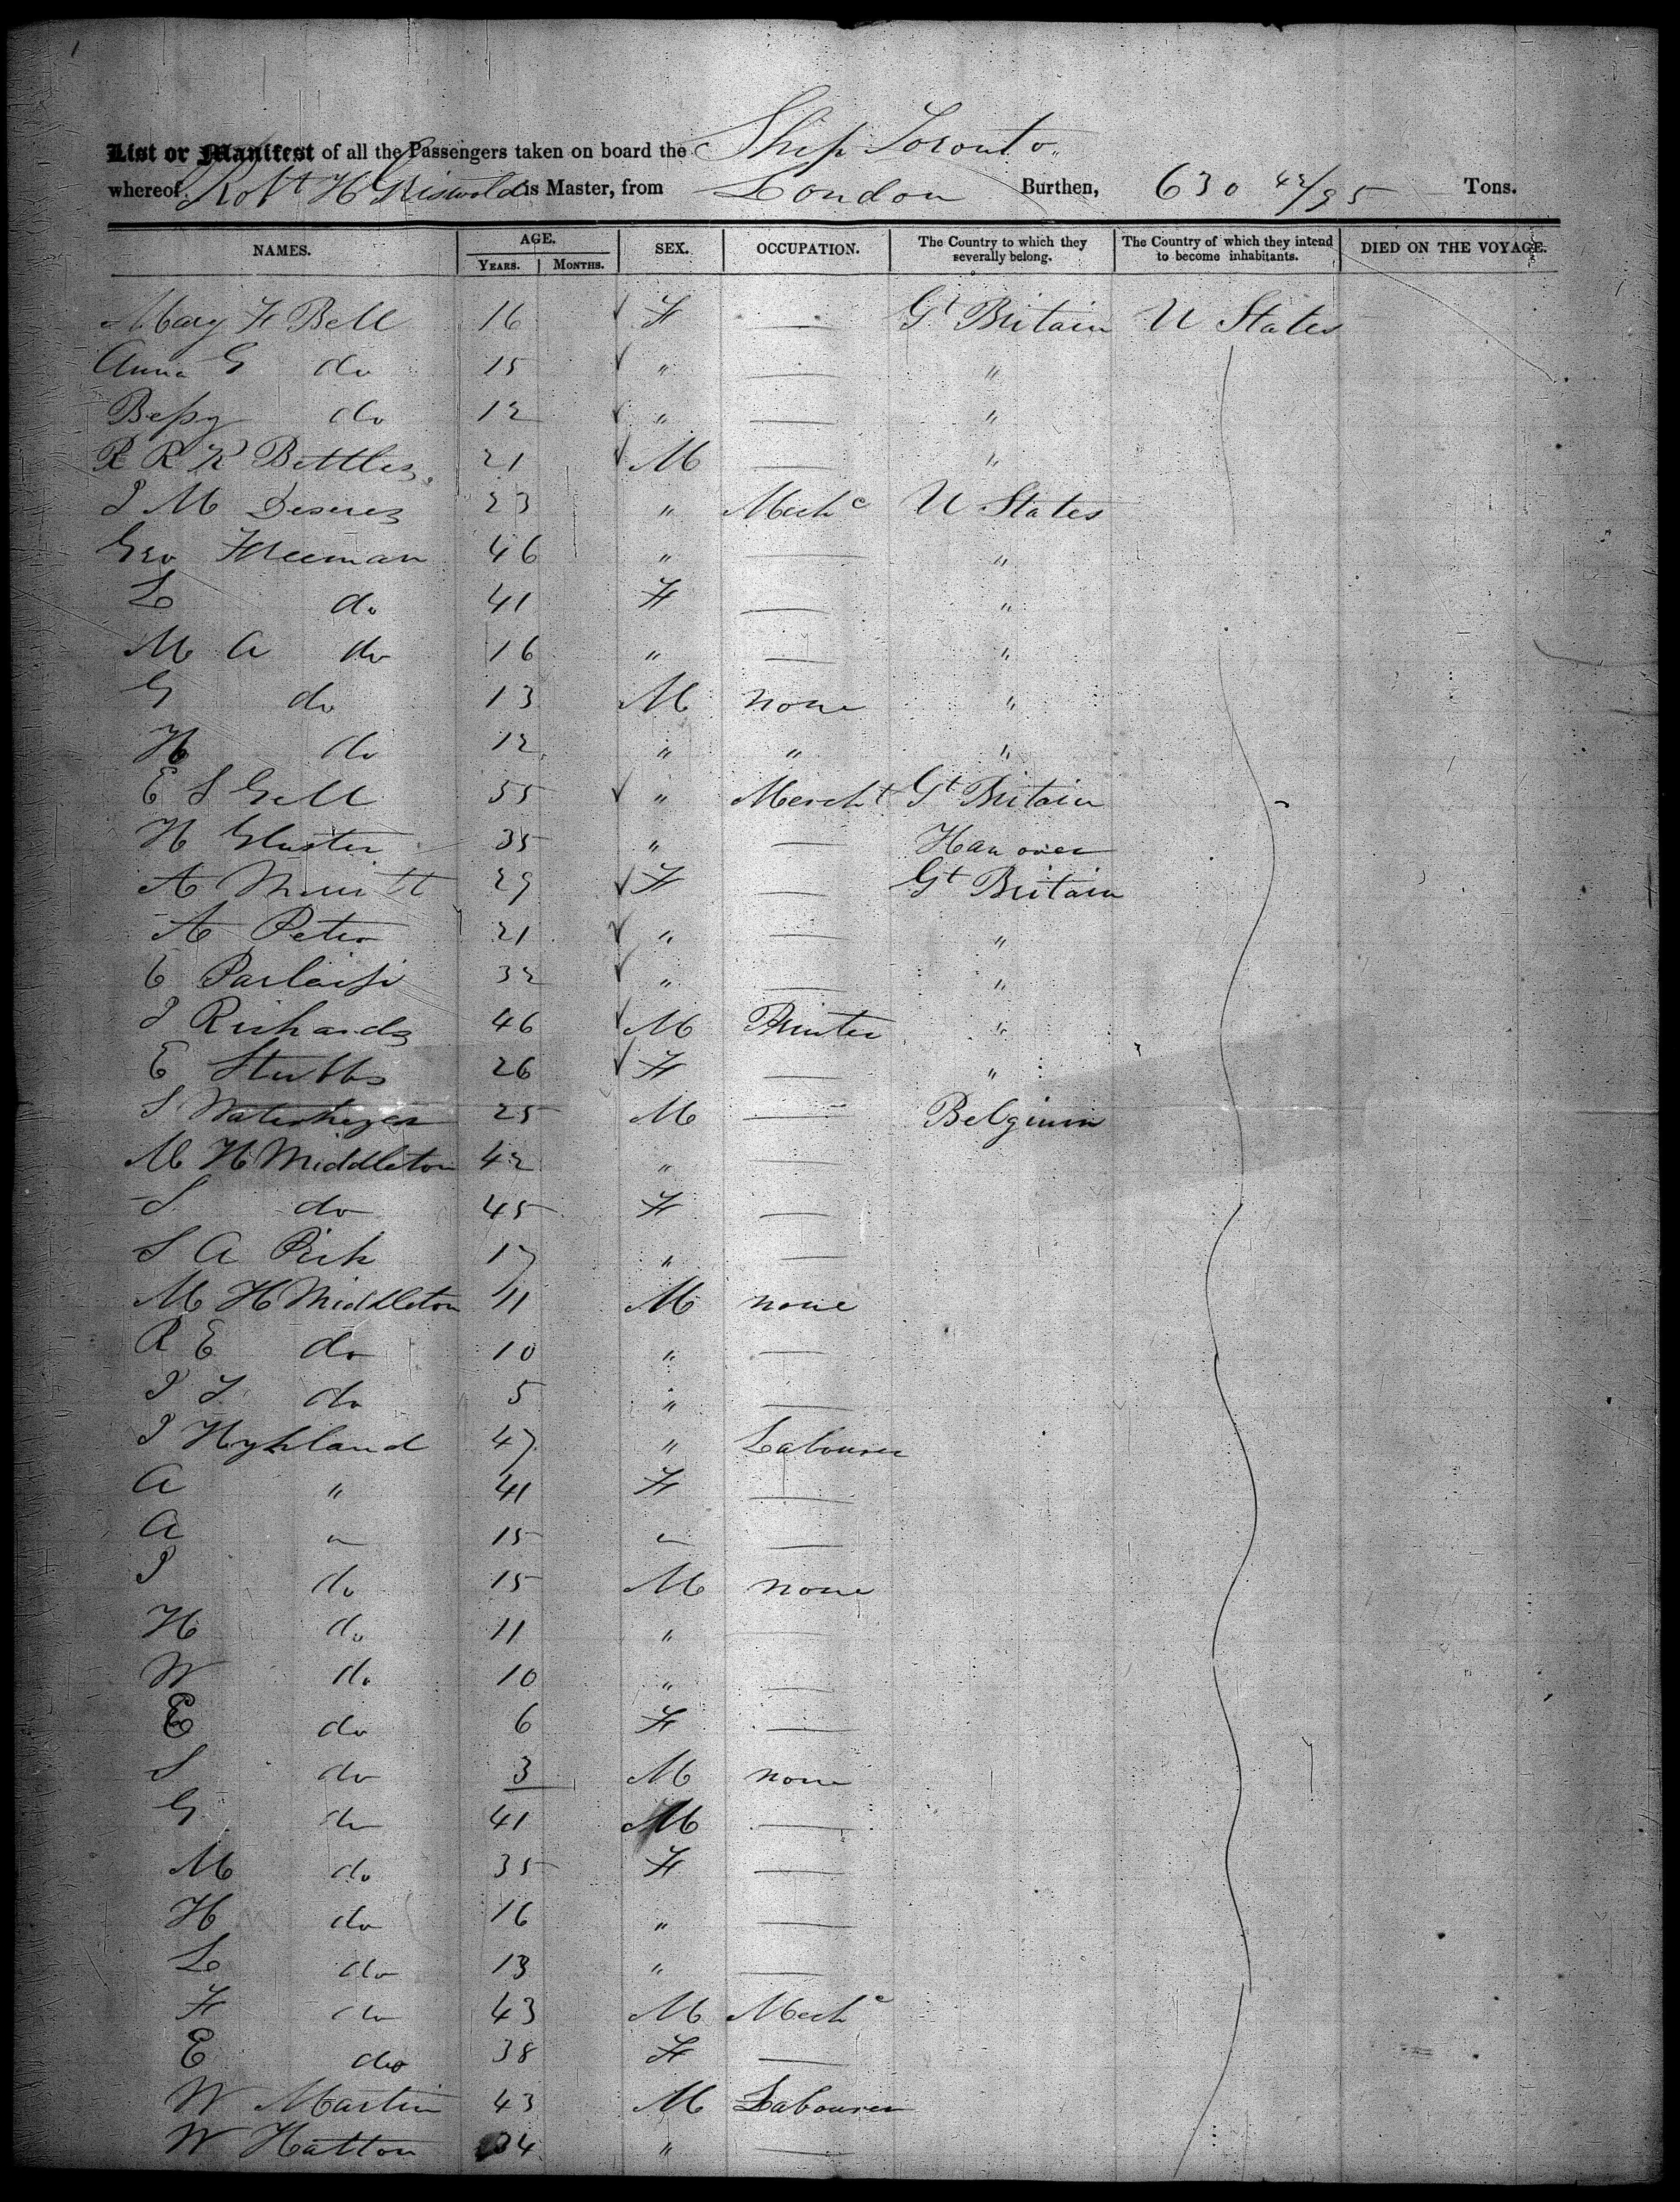 List or Manifest of all the Passengers taken on board the Ship Toronto
whereof Robt H Griswold is Master, from London Burthen, 630 42/95 Tons.
NAMES. AGE. SEX. OCCUPATION. The Country to which they severally belong. The Country of which they intend to become inhabitants. DIED ON THE VOYAGE.
YEARS. MONTHS.
Mary F Bell 16 F — Gt Britain U States
Anna G do 15 " — "
Bessy do 12 " — "
R R K Bettles 21 M — "
J M 23 " Mechc U States
Geo Freeman 46 " — "
L do 41 F — "
M A do 16 " — "
G do 13 M none "
H do 12 " " "
E S Gell 55 " Mercht Gt Britain
H 35 " — Hanover
A 29 F — Gt Britain
A Peter 21 " — "
C 32 " — "
J Richards 46 M Printer "
E Stubbs 26 F — "
S 25 M — Belgium
M H Middleton 42 " —
S do 45 F —
S A 17 " —
M H Middleton 11 M none
R E do 10 " —
J T do 5 " —
J Hyhland 47 " Labourer
A " 41 F —
A " 15 " —
J do 15 M none
H do 11 " —
W do 10 " —
E do 6 F —
S do 3 M none
G do 41 M —
M do 35 F —
H do 16 " —
L do 13 " —
F do 43 M Mechc
E do 38 F —
W Martin 43 M Labourer
W Hatton 34 " —